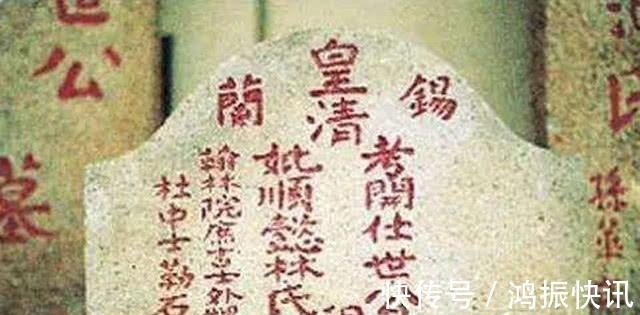 孫
錫蘭
皇清
考開仕世公
妣順懿林氏
翰林院庶吉士外
杜申士勒石
世公
墓
快传号/鸿振快讯